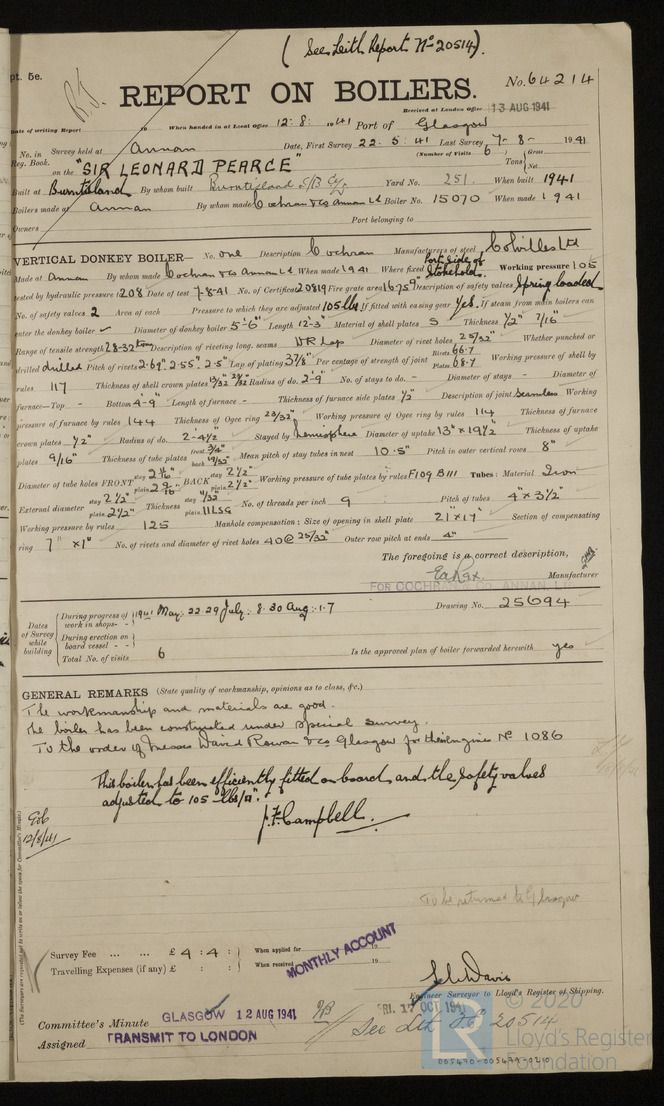 (See Leith Report No 20514).
pt. 5e.
R.J.
No. 64214
REPORT ON BOILERS.
Received at London Office 13 AUG 1941
Date of writing Report 19 When handed in at Local Office 12.8.1941 Port of Glasgow
No. in Survey held at Annan Date, First Survey 22.5.41 Last Survey 7-8-1941
Reg. Book. (Number of Visits 6) Tons Gross Net
on the "SIR LEONARD PEARCE"
Built at Burntisland By whom built Burntisland S/B Co/s Yard No. 251. When built 1941
Boilers made at Annan By whom made Cochran & Co Annan Ld Boiler No. 15070 When made 1941
Owners Port belonging to
VERTICAL DONKEY BOILER— No. one Description Cochran Manufacturers of steel Colvilles Ltd
Made at Annan By whom made Cochran & Co Annan Ld When made 1941 Where fixed Port side of Stokehold. Working pressure 105
tested by hydraulic pressure to 208 Date of test 7-8-41 No. of Certificate 20819 Fire grate area 16.75 Description of safety valves Spring loaded
No. of safety valves 2 Area of each Pressure to which they are adjusted 105 lbs If fitted with easing gear Yes. If steam from main boilers can
enter the donkey boiler ✓ Diameter of donkey boiler 5'-6" Length 12'-3" Material of shell plates S Thickness 1/2" 7/16"
Range of tensile strength 28-32 tons Description of riveting long. seams DR Lap Diameter of rivet holes 25/32" Whether punched or
drilled drilled Pitch of rivets 2.69" 2.55" 2.5" Lap of plating 3 7/8" Per centage of strength of joint Rivets 66.7 Plates 68.7 Working pressure of shell by
rules 117 Thickness of shell crown plates 13/32 Radius of do. 2'-9" No. of stays to do. - Diameter of stays - Diameter of
furnace—Top - Bottom 4'-9" Length of furnace - Thickness of furnace side plates 1/2" Description of joint Seamless Working
pressure of furnace by rules 144 Thickness of Ogee ring 23/32" Working pressure of Ogee ring by rules 114 Thickness of furnace
crown plates 1/2" Radius of do. 2-4 1/2 Stayed by hemisphere Diameter of uptake 13" x 19 1/2" Thickness of uptake
plates 9/16" Thickness of tube plates front 3/4" back 19/32" Mean pitch of stay tubes in nest 10.5" Pitch in outer vertical rows 8"
Diameter of tube holes FRONT stay plain BACK stay 2 1/2" plain 2 1/2" Working pressure of tube plates by rules F109 B111 Tubes: Material Iron
External diameter stay 2 1/2" plain 2 1/2" Thickness stay plain 11 LSG No. of threads per inch 9 Pitch of tubes 4" x 3 1/2"
Working pressure by rules 125 Manhole compensation: Size of opening in shell plate 21" x 17" Section of compensating
ring 7" x 1" No. of rivets and diameter of rivet holes 40 @ 25/32" Outer row pitch at ends 4"
The foregoing is a correct description,
Manufacturer
FOR COCHRAN & CO. ANNAN, LTD
Dates of Survey while building
During progress of work in shops - - 1941 May: 22.29 July: 8.30 Aug: 1.7 Drawing No. 25694
During erection on board vessel - -
Total No. of visits 6 Is the approved plan of boiler forwarded herewith yes
GENERAL REMARKS (State quality of workmanship, opinions as to class, &c.)
The workmanship and materials are good.
The boiler has been constructed under special survey.
To the order of Messrs David Rowan & Co Glasgow for their Engine No 1086
This boiler has been efficiently fitted on board and the safety valves
adjusted to 105 lbs/□".
J.F. Campbell.
12/8/41
To be returned to Glasgow
Survey Fee ... ... £ 4 : 4 : When applied for 19
Travelling Expenses (if any) £ : : When received 19
MONTHLY ACCOUNT
Engineer Surveyor to Lloyd's Register of Shipping.
Committee's Minute GLASGOW 12 AUG 1941
FRI. 17 OCT 1941
See Lth Rpt 20514
Assigned TRANSMIT TO LONDON
LR © 2020 Lloyd's Register Foundation
005490-005499-0210